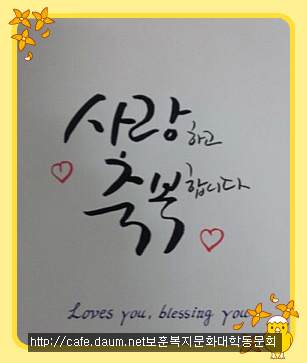 사랑하고
축복합니다
Loves you, blessing you
http://cafe.daum.net보훈복지문화대학동문회